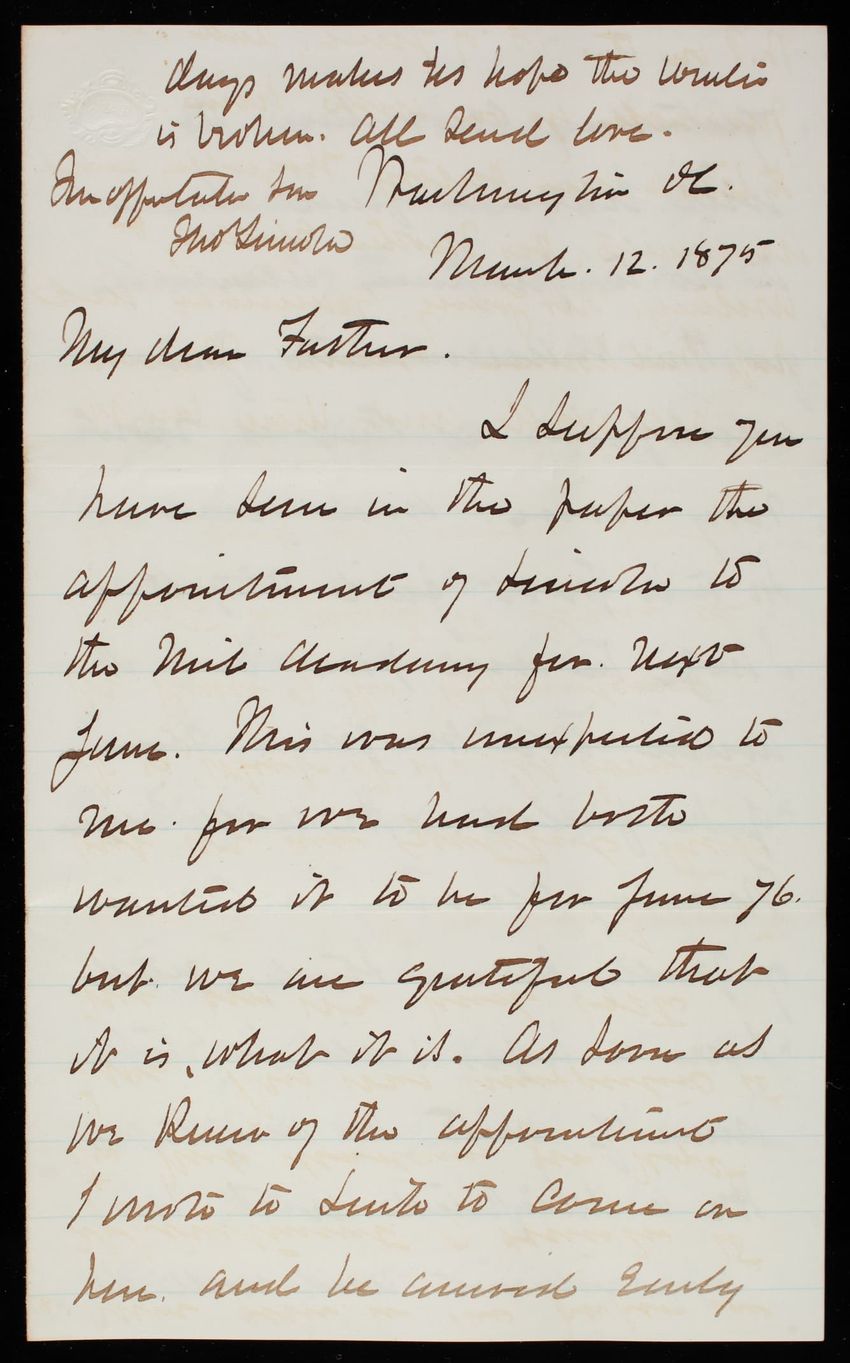 days makes us hope the winter
is broken. All send love.
In affectate Son Washington DC.
Thos Lincoln
March. 12. 1875
My dear Father.
I suppose you
have seen in the paper the
appointment of Lincoln to
the Mil Academy for. next
June. This was unexpected to
me. for we had both
wanted it to be for June 76.
but. we are grateful that
it is, what it is. As soon as
we knew of the appointment
I wrote to to come on
here. and he arrived Early